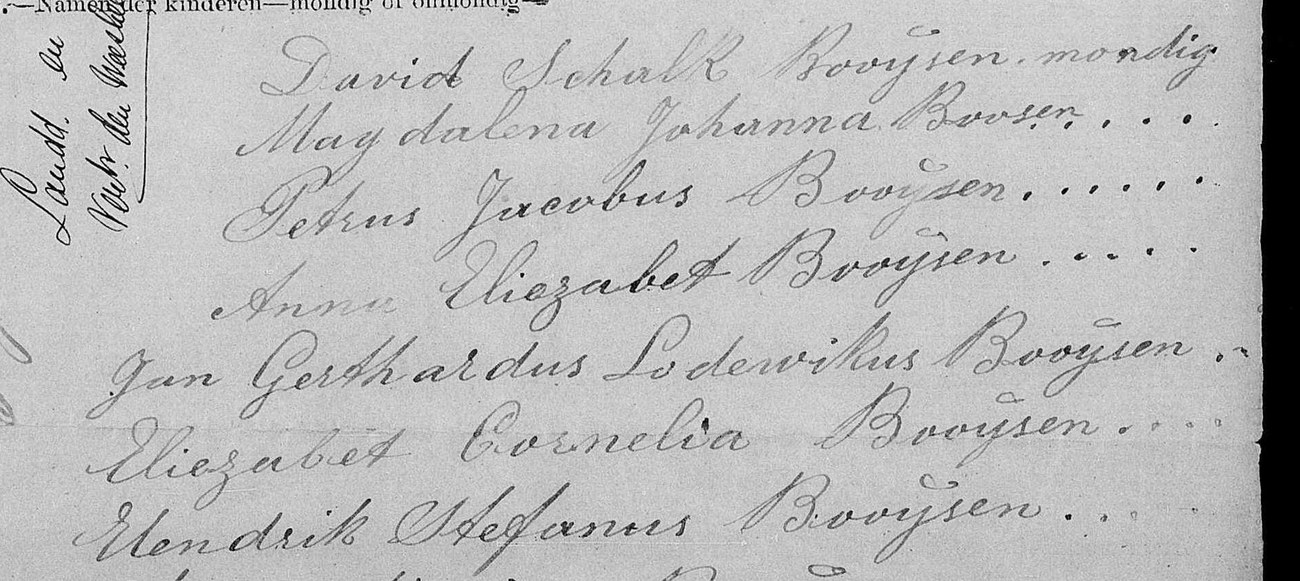 .—Namen der kinderen—mondig of onmondig—
Landd. en
David Schalk Booÿsen. mondig
Magdalena Johanna Boosen . . . . .
Petrus Jacobus Booÿsen . . . . . .
Anna Eliezabet Booÿsen . . . . .
Jan Gerthardus Lodewikus Booÿsen . .
Eliezabet Cornelia Booÿsen . . . .
Hendrik Stefanus Booÿsen . . .